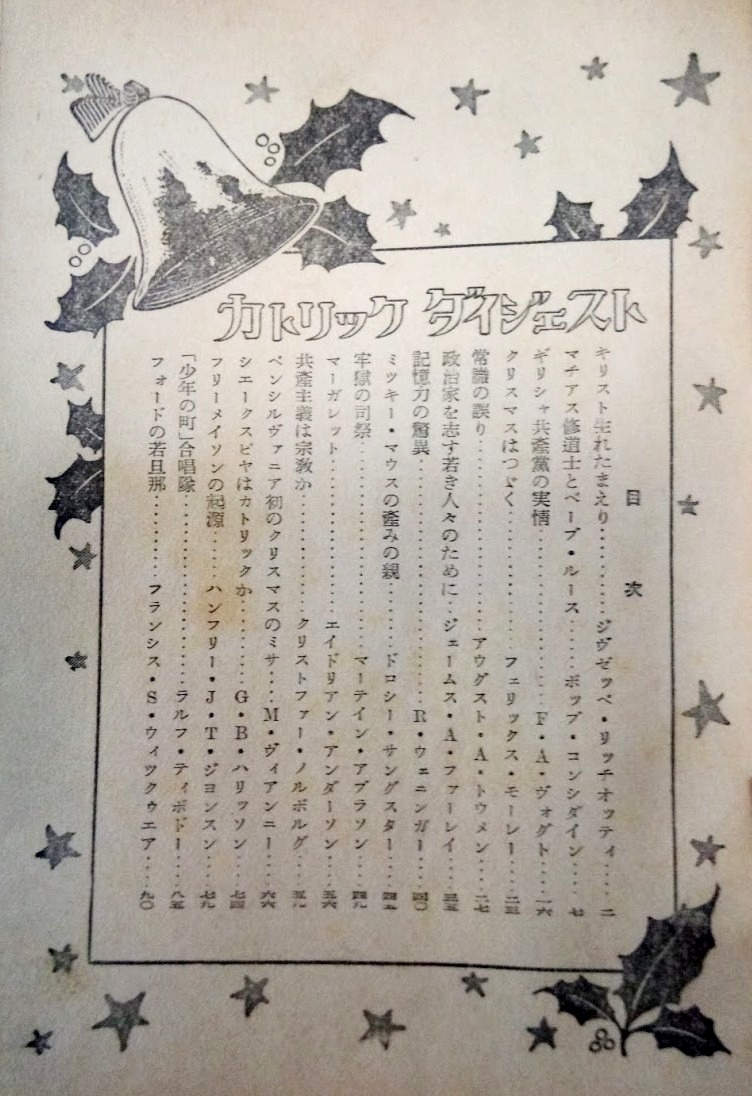 カトリック ダイジェスト
目次
キリスト生れたまえり………ジヴゼッペ・リッチオッティ……二
マチアス修道士とベーブ・ルース……ボッブ・コンシダイン……七
ギリシャ共產黨の実情………F・A・ヴォグト……一六
クリスマスはつゞく………フェリックス・モーレー……二三
常識の誤り………アウグスト・A・トウメン……二七
政治家を志す若き人々のために…ジェームス・A・ファーレイ……三五
記憶力の驚異………R・ウェニンガー……四〇
ミッキー・マウスの產みの親………ドロシー・サングスター……四五
牢獄の司祭………マーテイン・アブラソン……四九
マーガレット………エイドリアン・アンダーソン……五六
共產主義は宗敎か………クリストファー・ノルボルグ……五九
ペンシルヴァニア初のクリスマスのミサ……M・ヴィアンニー……六六
シエークスピヤはカトリックか………G・B・ハリッソン……七四
フリーメイソンの起源……ハンフリー・J・T・ジヨンスン……七九
「少年の町」合唱隊………ラルフ・ティボドー……八五
フォードの若旦那………フランシス・S・ウィックゥエア……九〇